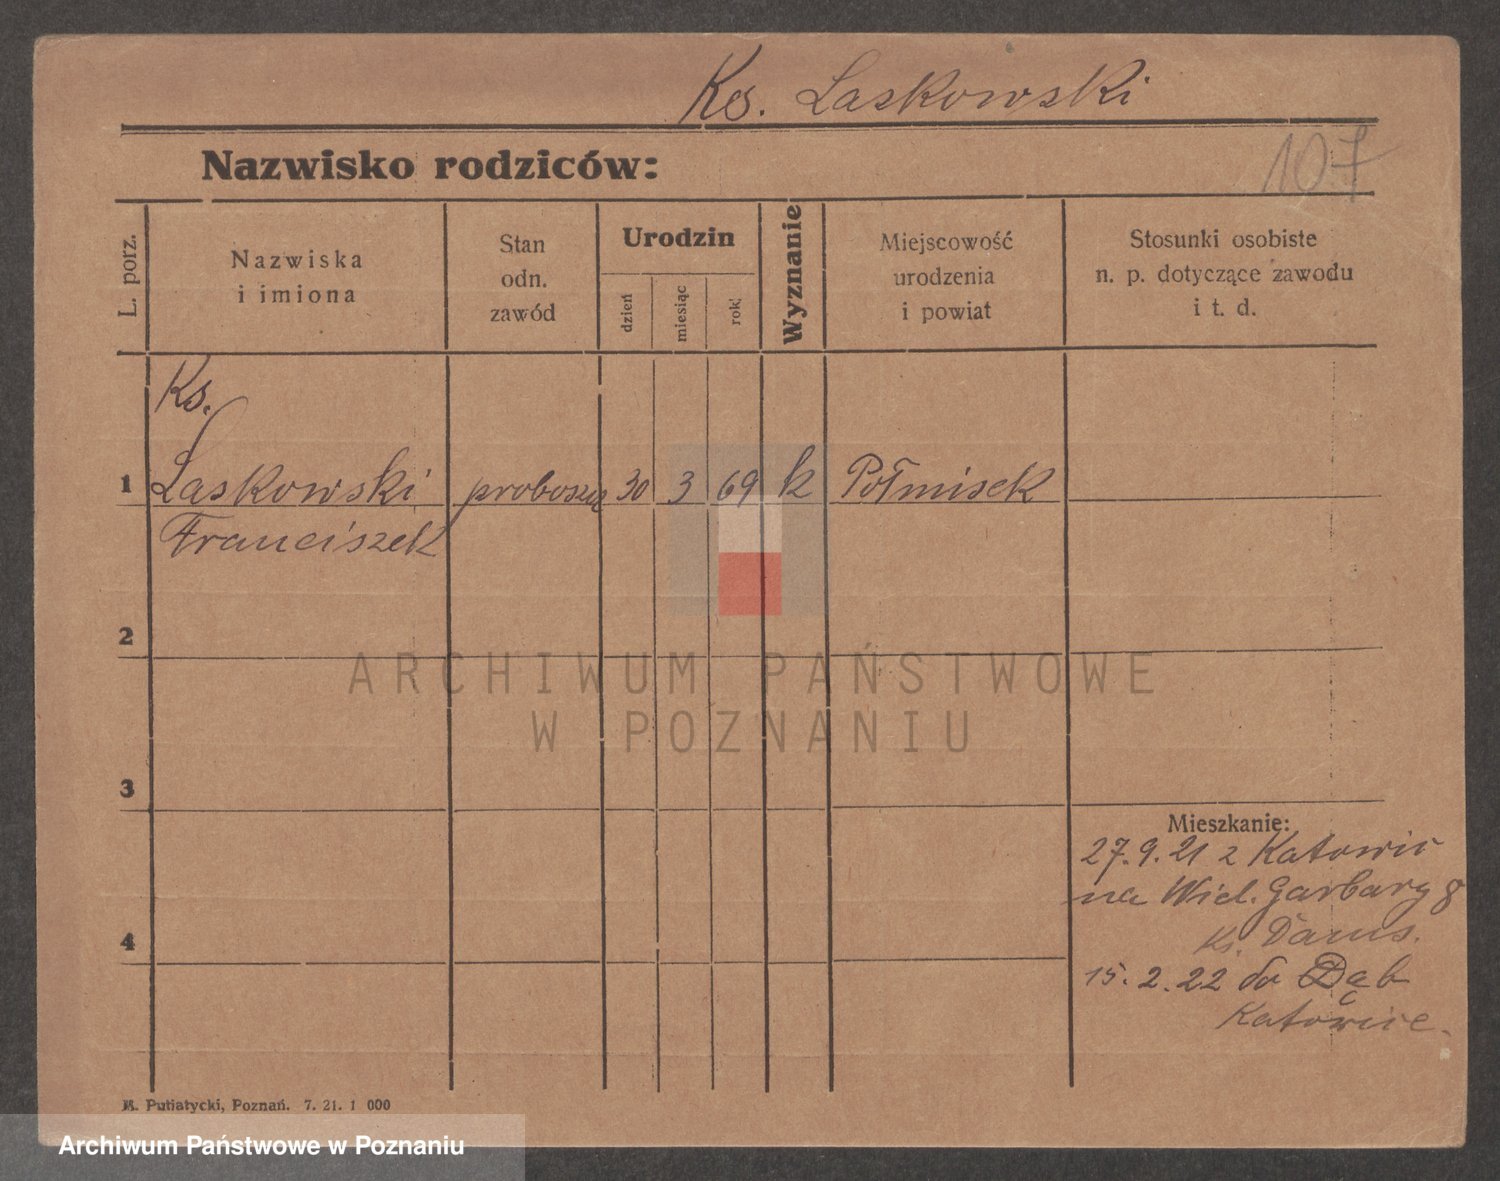 Ks. Laskowski
107
Nazwisko rodziców:
L. porz.
Nazwiska
i imiona
Stan
odn.
zawód
Urodzin
dzień
miesiąc
rok
Wyznanie
Miejscowość
urodzenia
i powiat
Stosunki osobiste
n. p. dotyczące zawodu
i t. d.
Ks.
1 Laskowski proboszcz 30 3 69 k Połmisek
Franciszek
2
3
4
Mieszkanie:
27.9.21 z Katowic
na Wiel. Garbary 8
Ks.
15.2.22 do Dąb
Katowice.
M. Putiatycki, Poznań. 7. 21. 1 000
ARCHIWUM PAŃSTWOWE
W POZNANIU
Archiwum Państwowe w Poznaniu